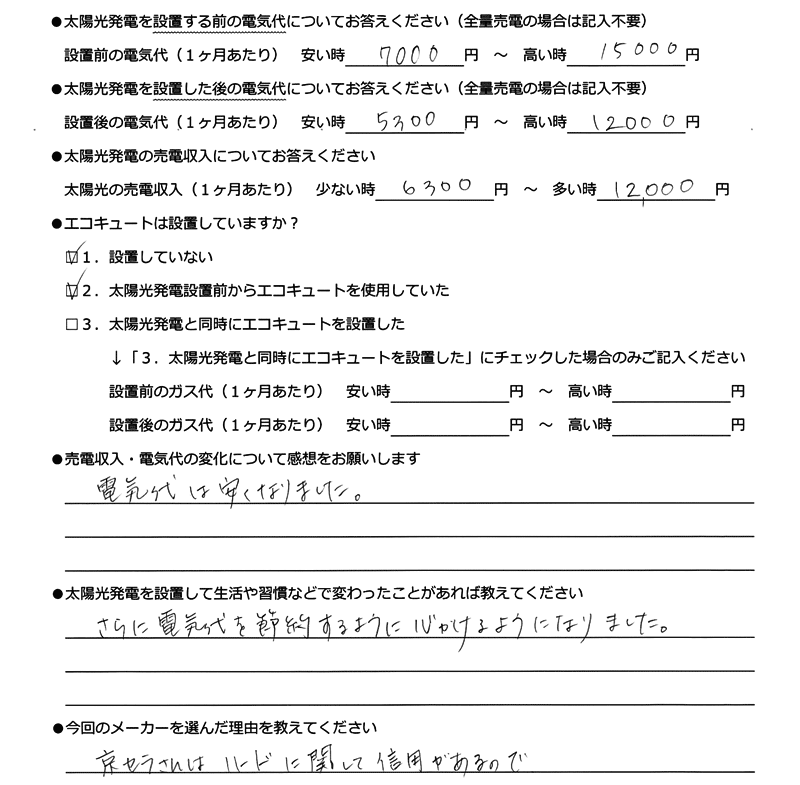 ●太陽光発電を設置する前の電気代についてお答えください（全量売電の場合は記入不要）
設置前の電気代（１ヶ月あたり） 安い時 7000 円 ～ 高い時 15000 円
●太陽光発電を設置した後の電気代についてお答えください（全量売電の場合は記入不要）
設置後の電気代（１ヶ月あたり） 安い時 5300 円 ～ 高い時 12000 円
●太陽光発電の売電収入についてお答えください
太陽光の売電収入（１ヶ月あたり） 少ない時 6300 円 ～ 多い時 12,000 円
●エコキュートは設置していますか？
☑１．設置していない
☑２．太陽光発電設置前からエコキュートを使用していた
□３．太陽光発電と同時にエコキュートを設置した
↓「３．太陽光発電と同時にエコキュートを設置した」にチェックした場合のみご記入ください
設置前のガス代（１ヶ月あたり） 安い時 円 ～ 高い時 円
設置後のガス代（１ヶ月あたり） 安い時 円 ～ 高い時 円
●売電収入・電気代の変化について感想をお願いします
電気代は安くなりました。
●太陽光発電を設置して生活や習慣などで変わったことがあれば教えてください
さらに電気代を節約するように心がけるようになりました。
●今回のメーカーを選んだ理由を教えてください
京セラさんはハードに関して信用があるので